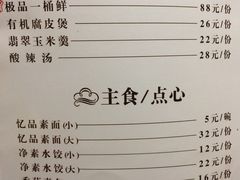 极品一桶鲜 88元/份
有机腐皮煲 26元/份
翡翠玉米羹 22元/份
酸辣汤 28元/份
主食/点心
忆品素面(小) 5元/碗
忆品素面(大) 32元/份
净素水饺(小) 12元/份
净素水饺(大) 22元/份
16元/份